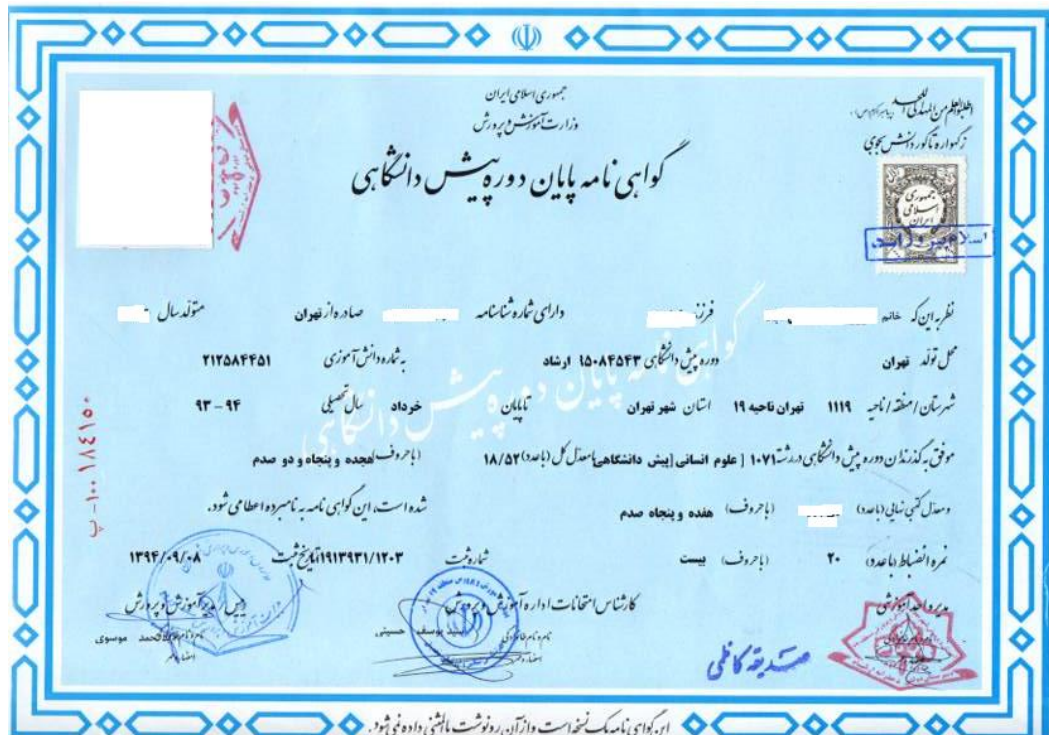 جمهوری اسلامی ایران
وزارت آموزش و پرورش
گواهی نامه پایان دوره پیش دانشگاهی
اطلبوا العلم من المهد الی اللحد
ز گهواره تا گور دانش بجوی
جمهوری اسلامی ایران
نظر به این که خانم فرزند دارای شماره شناسنامه صادره از تهران متولد سال
محل تولد تهران دوره پیش دانشگاهی ۱۵۰۸۴۵۴۳ ارشاد به شماره دانش آموزی ۲۱۲۵۸۴۴۵۱
شهرستان / منطقه / ناحیه ۱۱۱۹ تهران ناحیه ۱۹ استان شهر تهران تا پایان خرداد سال تحصیلی ۹۳ - ۹۴
موفق به گذراندن دوره پیش دانشگاهی در رشته ۱۰۷۱ [ علوم انسانی [پیش دانشگاهی با معدل کل (با عدد) ۱۸/۵۲ (با حروف) هجده و پنجاه و دو صدم
و معدل کتبی نهایی (با عدد) (با حروف) هفده و پنجاه صدم شده است، این گواهی نامه به نامبرده اعطا می شود.
نمره انضباط (با عدد) ۲۰ (با حروف) بیست شماره ثبت ۱۹۱۳۹۳۱/۱۲۰۳ تاریخ ثبت ۱۳۹۴/۰۹/۰۸
مدیر واحد آموزشی کارشناس امتحانات اداره آموزش و پرورش رئیس / مدیر آموزش و پرورش
نام و نام خانوادگی سید یوسف حسینی
نام و نام خانوادگی محمد موسوی
امضاء و مهر
صدیقه کاظمی
گواهی نامه پایان دوره پیش دانشگاهی
پ-۱۰۰۱۸۴۱۵۰
این گواهی نامه یک نسخه است و از آن رونوشت یا المثنی داده نمی شود.